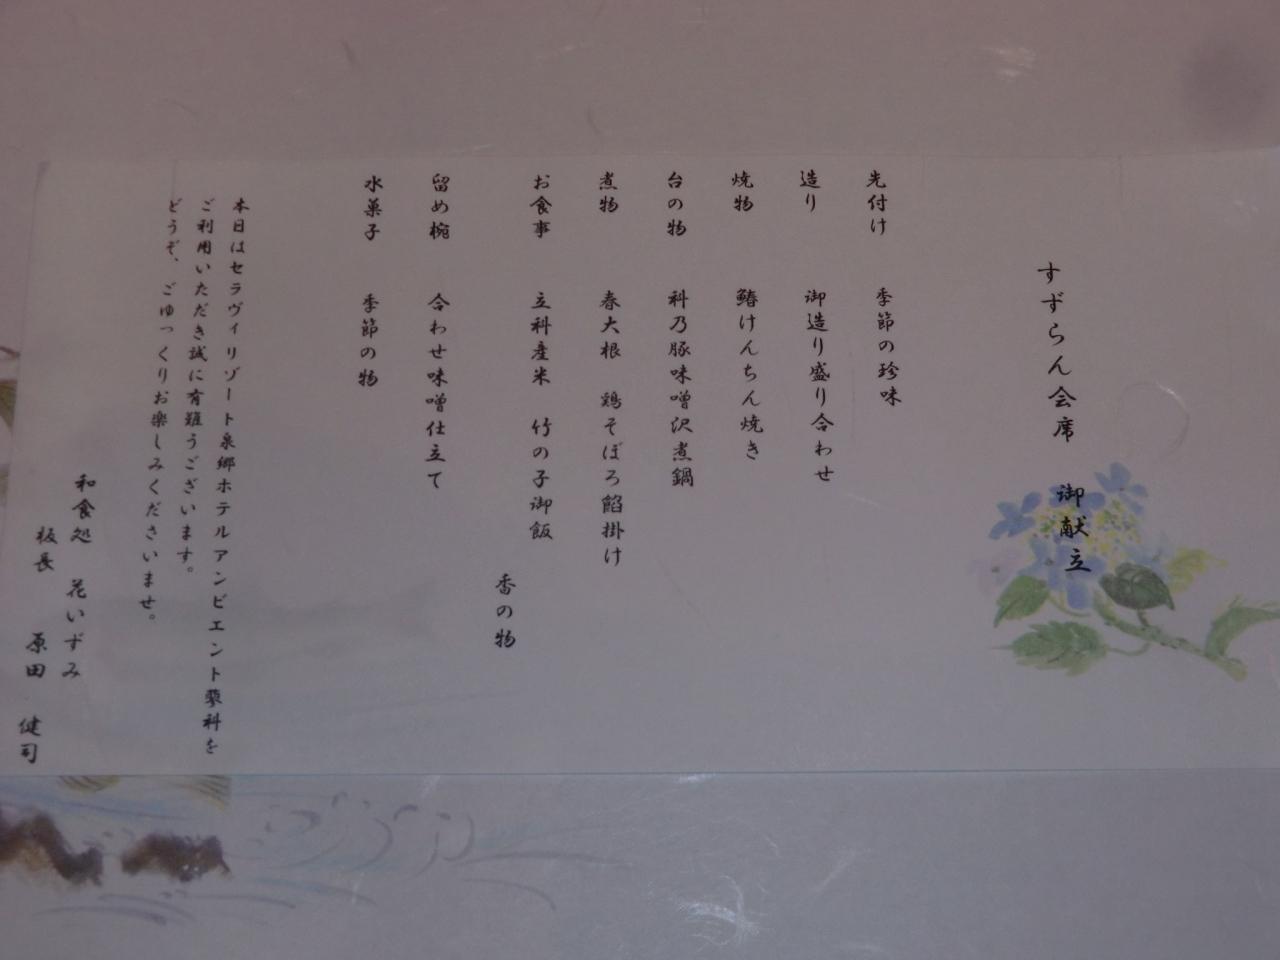 すずらん会席 御献立
先付け 季節の珍味
造り 御造り盛り合わせ
焼物 鰆けんちん焼き
台の物 科乃豚味噌沢煮鍋
煮物 春大根 鶏そぼろ餡掛け
お食事 立科産米 竹の子御飯
香の物
留め椀 合わせ味噌仕立て
水菓子 季節の物
本日はセラヴィリゾート泉郷ホテルアンビエント蓼科を
ご利用いただき誠に有難うございます。
どうぞ、ごゆっくりお楽しみくださいませ。
和食処 花いずみ
板長 原田 健司